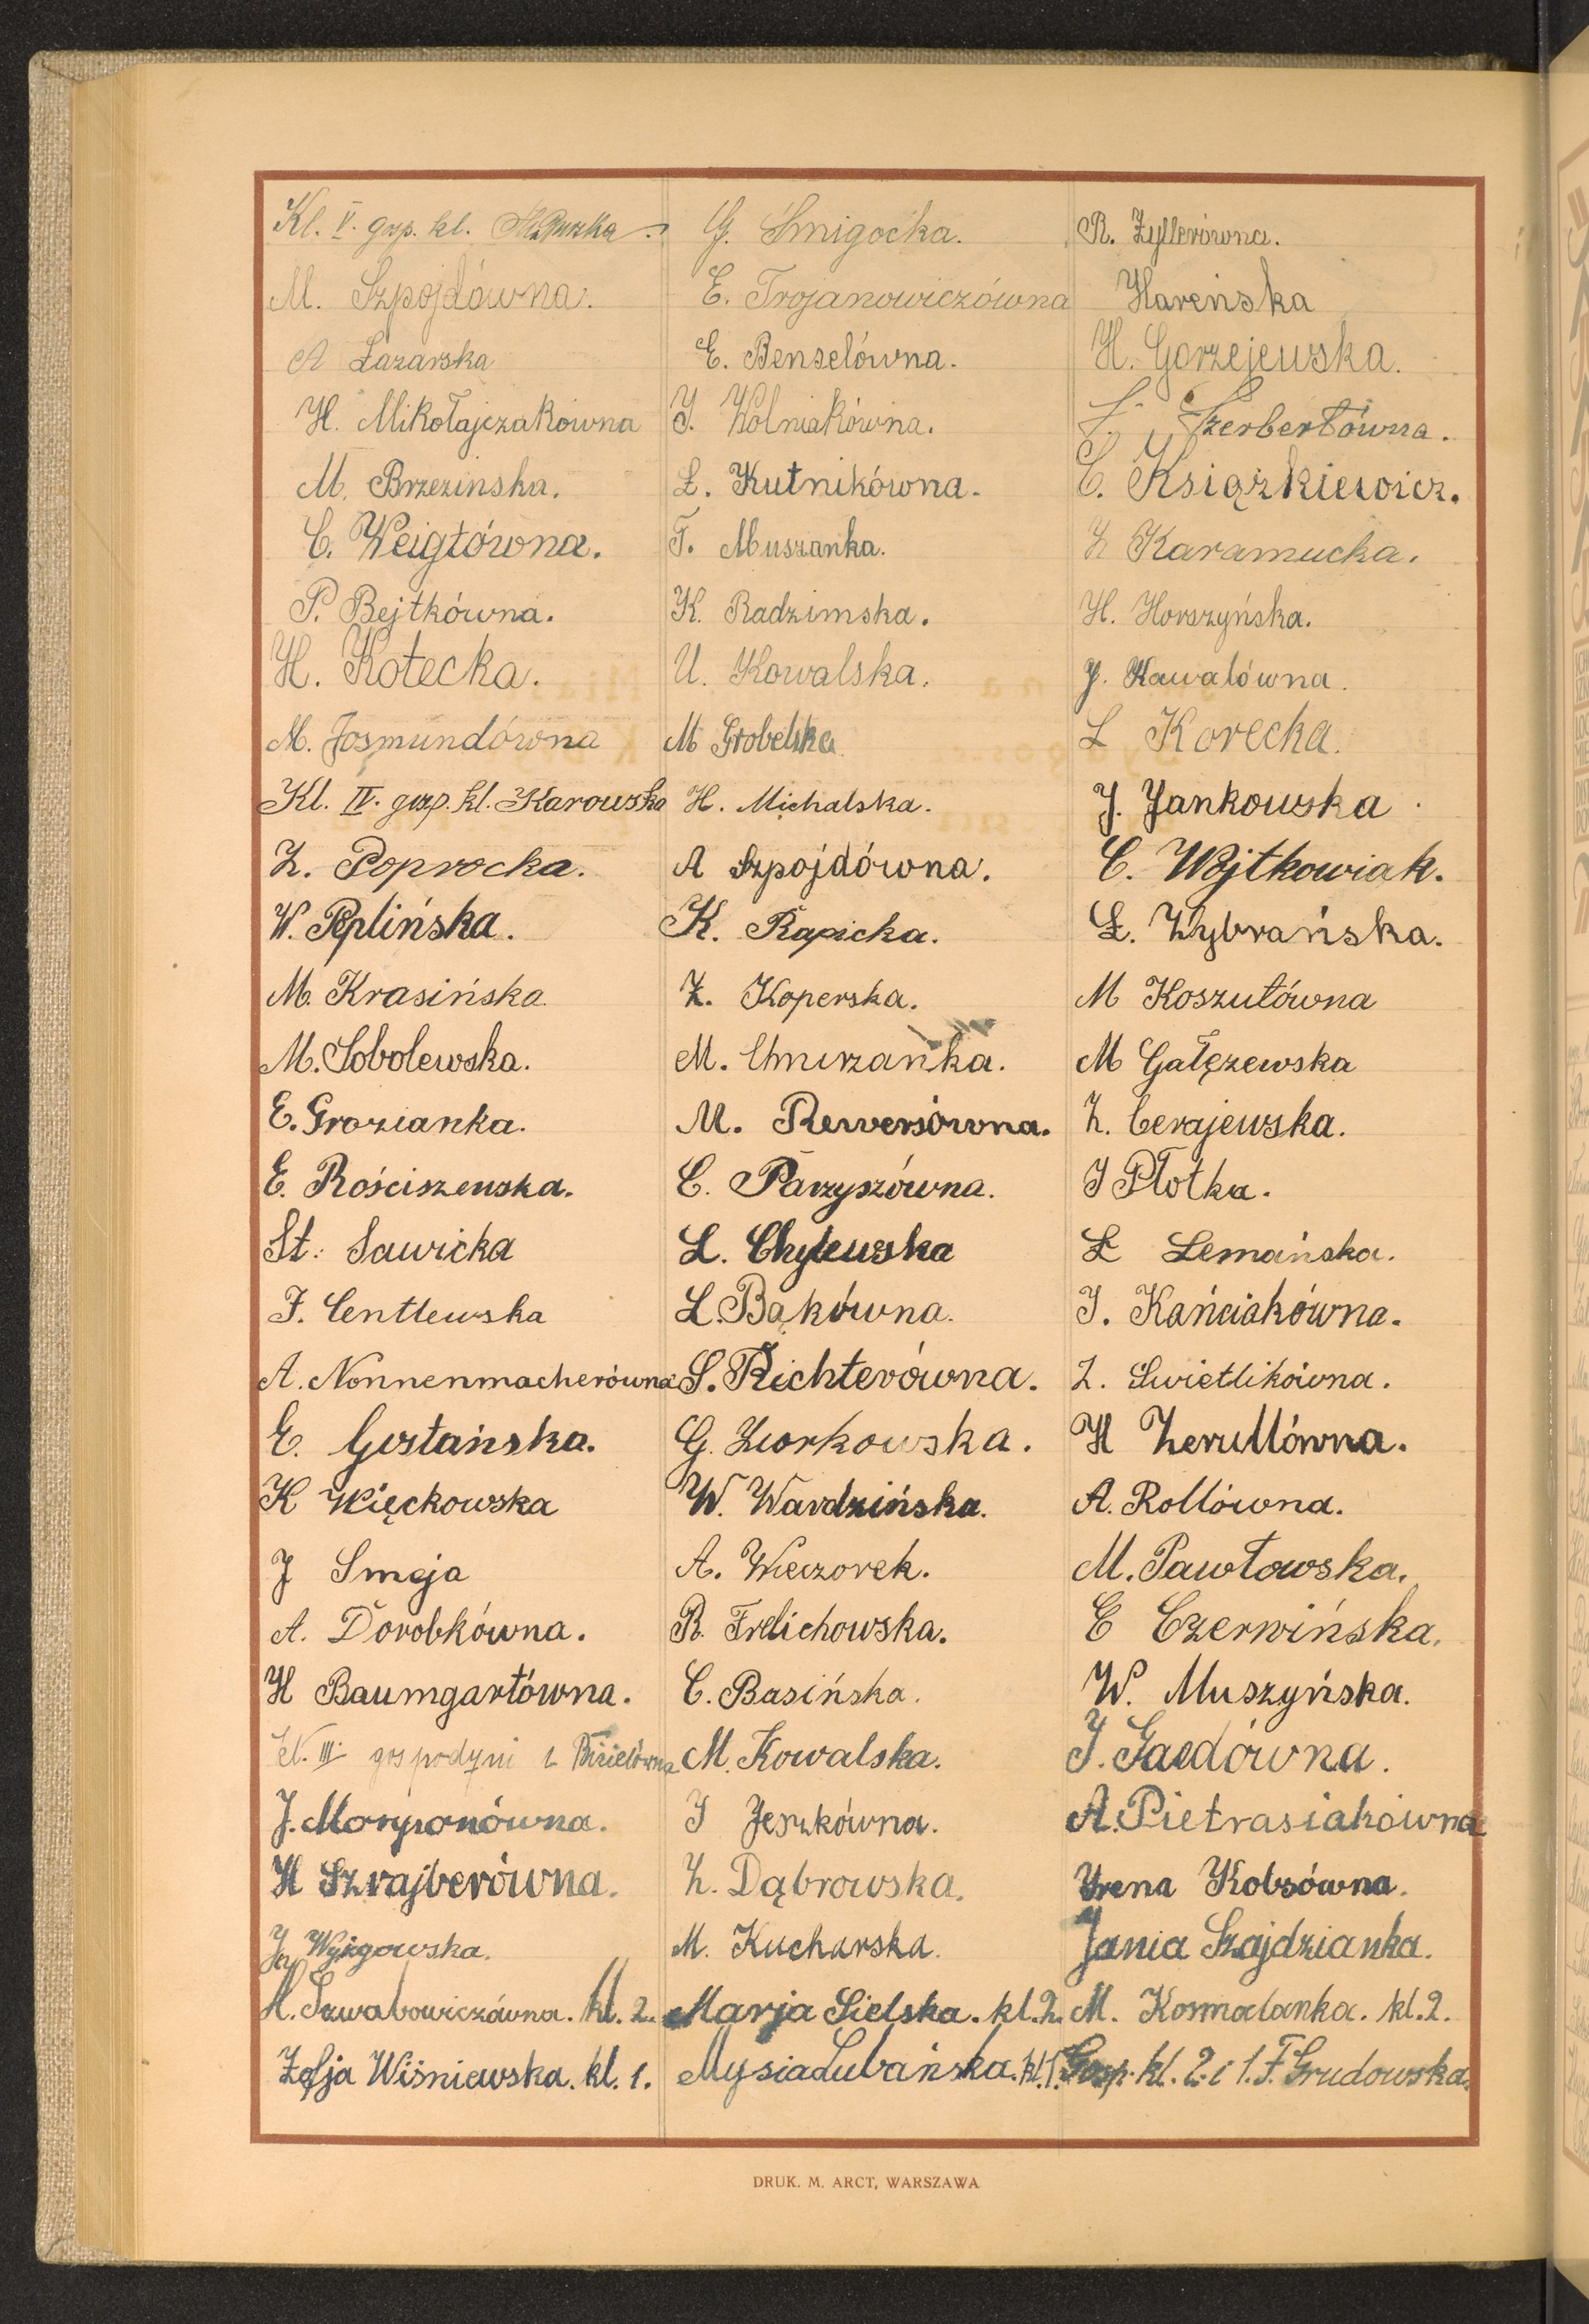 Kl. V. gosp. kl.
G. Śmigocka.
R. Zyllerówna.
M. Szpojdówna.
E. Trojanowiczówna
Hareńska
A Łazarska
E. Benselówna.
H. Gorzejewska.
H. Mikołajczakówna
J. Wolniakówna.
Szerbertówna.
M. Brzezinska.
Ł. Kutnikówna.
C. Książkiewicz.
C. Weigtówna.
F. Muszanka.
Z Karamucka.
P. Bejtkówna.
K. Radzimska.
H. Horszyńska.
H. Kotecka.
U. Kowalska.
J. Kawalówna.
M. Josmundówna
M Grobelska
L Korecka.
Kl. IV. gosp. kl. Karowska
H. Michalska.
J. Jankowska
Z. Poprocka.
A Szpojdówna.
C. Wojtkowiak.
W. Peplińska.
K. Rapicka.
Ł. Wybrańska.
M. Krasińska
Z. Koperska.
M Koszutówna
M. Sobolewska.
M. Chmirzanka.
M Gałęzewska
E. Grozianka.
M. Rewersówna.
Z. Cerajewska.
E. Rościszewska.
C. Parzyszówna.
J Płotka.
St. Sawicka
L. Chylewska
Ł Lemańska.
F. Centlewska
L. Bąkówna.
J. Kańciakówna.
A. Nonnenmacherówna
S. Richterówna.
Z. Swietlikówna.
E. Gustańska.
G. Ziorkowska.
H Zerullówna.
K Więckowska
W. Wardzińska.
A. Rollówna.
J Smeja
A. Wieczorek.
M. Pawłowska.
A. Dorobkówna.
R. Frelichowska.
C Czerwińska.
H Baumgartówna.
C. Basińska.
W. Muszyńska.
Kl. III. gospodyni
M. Kowalska.
J. Gaedówna.
J. Morysonówna.
J Jeszkówna.
A. Pietrasiakówna
H Szrajberówna.
Z. Dąbrowska.
Irena Kobsówna.
Wyzgowska.
M. Kucharska.
Jania Szajdzianka.
H. Szwabowiczówna. kl. 2.
Marja Sielska. kl. 2.
M. Kosmalanka. kl. 2.
Zofja Wiśniewska. kl. 1.
Mysia Lubańska. kl. 1.
Gosp. kl. 2. i 1. F. Grudowska.
DRUK. M. ARCT, WARSZAWA